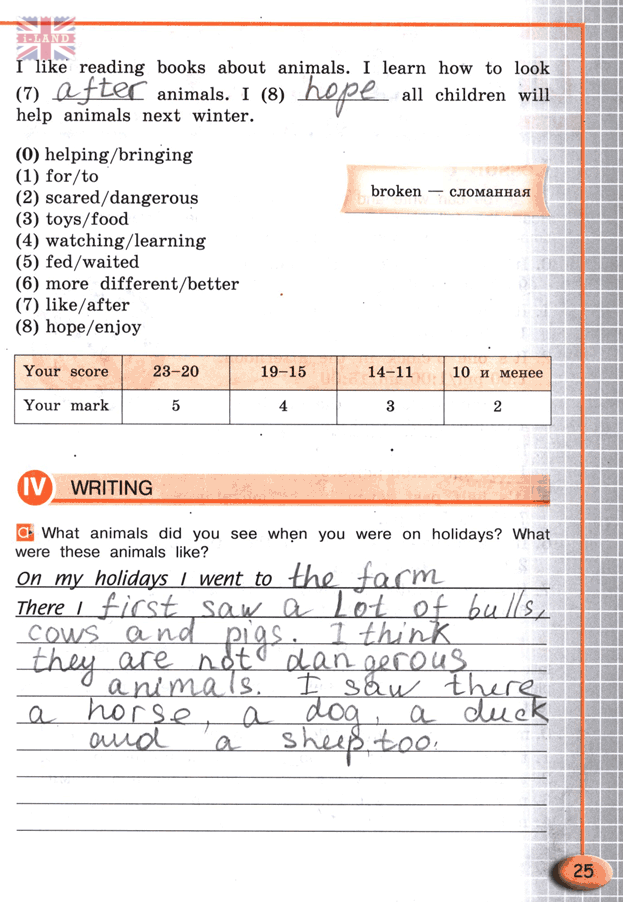 i-LAND
I like reading books about animals. I learn how to look
(7) after animals. I (8) hope all children will
help animals next winter.
(0) helping/bringing
(1) for/to
(2) scared/dangerous
(3) toys/food
(4) watching/learning
(5) fed/waited
(6) more different/better
(7) like/after
(8) hope/enjoy
broken — сломанная
Your score 23–20 19–15 14–11 10 и менее
Your mark 5 4 3 2
IV WRITING
a. What animals did you see when you were on holidays? What
were these animals like?
On my holidays I went to the farm
There I first saw a lot of bulls,
cows and pigs. I think
they are not dangerous
animals. I saw there
a horse, a dog, a duck
and a sheep, too.
25